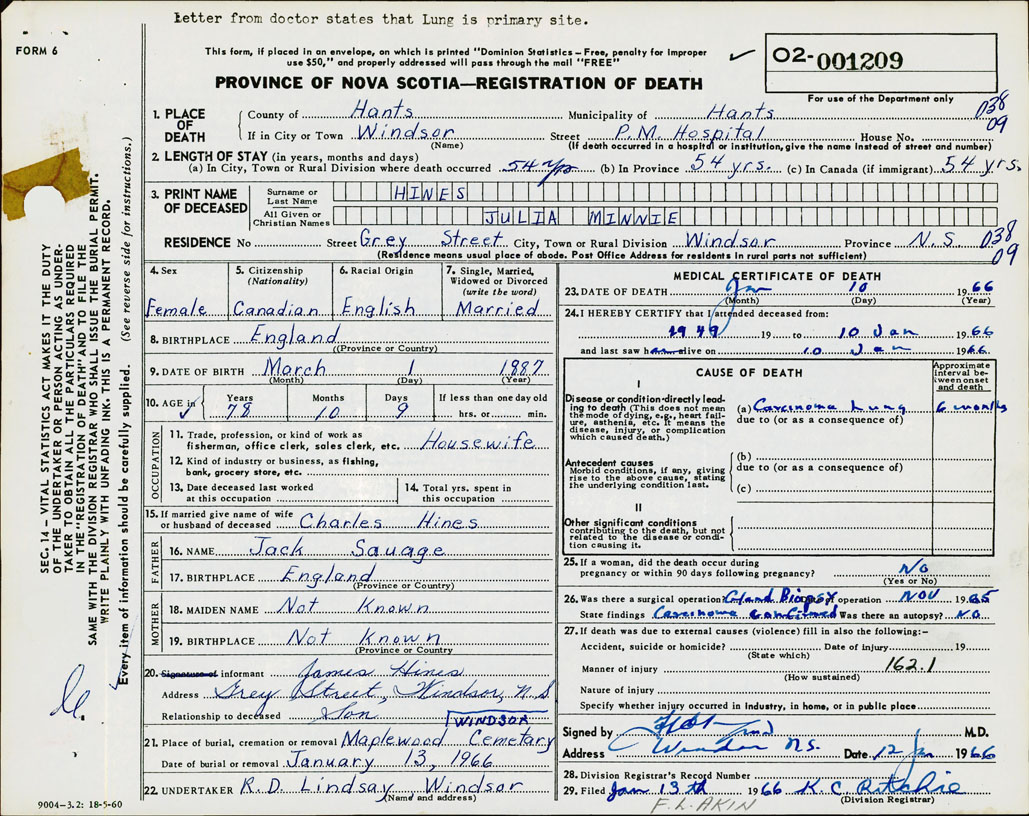 Letter from doctor states that Lung is primary site.
FORM 6
This form, if placed in an envelope, on which is printed "Dominion Statistics – Free, penalty for improper
use $50," and properly addressed will pass through the mail "FREE"
02-001209
For use of the Department only
PROVINCE OF NOVA SCOTIA—REGISTRATION OF DEATH
1. PLACE OF DEATH
County of Hants Municipality of Hants 038
If in City or Town Windsor Street P.M. Hospital House No. 09
(Name) (If death occurred in a hospital or institution, give the name instead of street and number)
2. LENGTH OF STAY (in years, months and days)
(a) In City, Town or Rural Division where death occurred 54 yrs (b) In Province 54 yrs. (c) In Canada (if immigrant) 54 yrs.
3. PRINT NAME OF DECEASED
Surname or Last Name HINES
All Given or Christian Names JULIA MINNIE
RESIDENCE No Street Grey Street City, Town or Rural Division Windsor Province N.S. 038
(Residence means usual place of abode. Post Office Address for residents in rural parts not sufficient) 09
4. Sex Female
5. Citizenship (Nationality) Canadian
6. Racial Origin English
7. Single, Married, Widowed or Divorced (write the word) Married
8. BIRTHPLACE England
(Province or Country)
9. DATE OF BIRTH March 1 1887
(Month) (Day) (Year)
10. AGE in Years 78 Months 10 Days 9 If less than one day old hrs. or min.
OCCUPATION
11. Trade, profession, or kind of work as
fisherman, office clerk, sales clerk, etc. Housewife
12. Kind of industry or business, as fishing,
bank, grocery store, etc.
13. Date deceased last worked
at this occupation
14. Total yrs. spent in
this occupation
15. If married give name of wife
or husband of deceased Charles Hines
FATHER
16. NAME Jack Sauage
17. BIRTHPLACE England
(Province or Country)
MOTHER
18. MAIDEN NAME Not Known
19. BIRTHPLACE Not Known
(Province or Country)
20. Signature of informant James Hines
Address Grey Street, Windsor, N.S
Relationship to deceased Son
WINDSOR
21. Place of burial, cremation or removal Maplewood Cemetary
Date of burial or removal January 13, 1966
22. UNDERTAKER R.D. Lindsay Windsor
(Name and address)
MEDICAL CERTIFICATE OF DEATH
23. DATE OF DEATH Jan 10 1966
(Month) (Day) (Year)
24. I HEREBY CERTIFY that I attended deceased from:
1949 19 to 10 Jan 1966
and last saw h alive on 10 Jan 1966
CAUSE OF DEATH
Approximate interval between onset and death
I
Disease or condition directly leading to death (This does not mean
the mode of dying, e.g., heart failure, asthenia, etc. It means the
disease, injury, or complication
which caused death.)
(a) Carcinoma Lung 6 months
due to (or as a consequence of)
Antecedent causes
Morbid conditions, if any, giving
rise to the above cause, stating
the underlying condition last.
(b)
due to (or as a consequence of)
(c)
II
Other significant conditions
contributing to the death, but not
related to the disease or condition causing it.
25. If a woman, did the death occur during
pregnancy or within 90 days following pregnancy? No
(Yes or No)
26. Was there a surgical operation? Gland Biopsy of operation NOV 1965
State findings Carcinoma Confirmed Was there an autopsy? No
27. If death was due to external causes (violence) fill in also the following:–
Accident, suicide or homicide? Date of injury 19
(State which)
Manner of injury 162.1
(How sustained)
Nature of injury
Specify whether injury occurred in industry, in home, or in public place
Signed by M.D.
Address Windsor N.S. Date 12 Jan 1966
28. Division Registrar's Record Number
29. Filed Jan 13th 1966 K. C. Ritchie
(Division Registrar)
F. L. AKIN
SEC. 14 – VITAL STATISTICS ACT MAKES IT THE DUTY
OF THE UNDERTAKER OR PERSON ACTING AS UNDERTAKER TO OBTAIN ALL THE PARTICULARS REQUIRED
IN THE "REGISTRATION OF DEATH" AND TO FILE THE
SAME WITH THE DIVISION REGISTRAR WHO SHALL ISSUE THE BURIAL PERMIT.
WRITE PLAINLY WITH UNFADING INK. THIS IS A PERMANENT RECORD.
Every item of information should be carefully supplied. (See reverse side for instructions.)
9004–3.2: 18-5-60